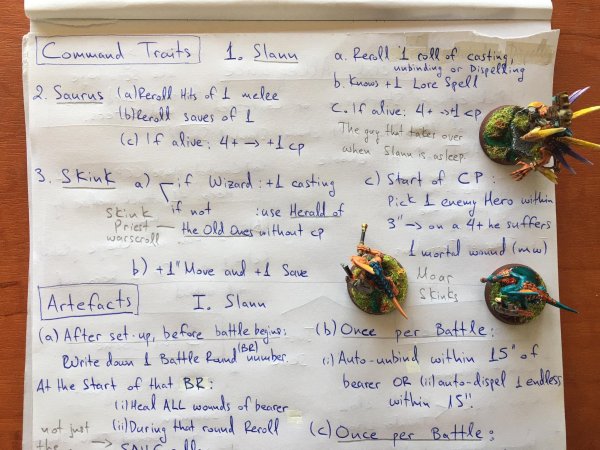 Command Traits
1. Slann
a. Reroll 1 roll of casting,
unbinding or Dispelling
b. Knows +1 Lore Spell
c. If alive: 4+ → +1 cp
The guy that takes over
when Slann is asleep.
2. Saurus (a) Reroll Hits of 1 melee
(b) Reroll saves of 1
(c) If alive: 4+ → +1 cp
3. Skink a) if Wizard: +1 casting
if not : use Herald of
the Old Ones without cp
Skink
Priest
warscroll
b) +1" Move and +1 Save
c) Start of CP:
Pick 1 enemy Hero within
3" → on a 4+ he suffers
1 mortal wound (mw)
Moar
Skinks
Artefacts
I. Slann
(a) After set-up, before battle begins:
Write down 1 Battle Round (BR) number
At the start of that BR:
(i) Heal ALL wounds of bearer
(ii) During that round Reroll
not just
the
(b) Once per Battle:
(i) Auto-unbind within 15" of
bearer OR (ii) auto-dispel 1 endless
within 15".
(c) Once per Battle: